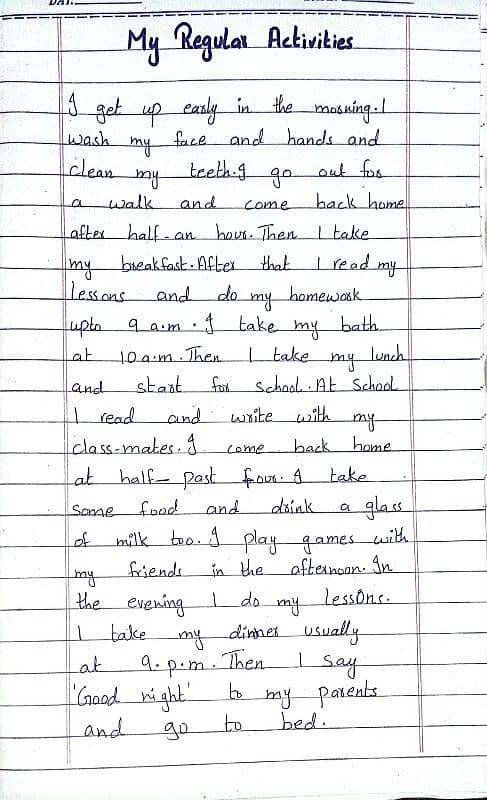 My Regular Activities
I get up early in the morning. I
wash my face and hands and
clean my teeth. I go out for
a walk and come back home
after half-an hour. Then I take
my breakfast. After that I read my
lessons and do my homework
upto 9 a.m. I take my bath
at 10 a.m. Then I take my lunch
and start for school. At School
I read and write with my
class-mates. I come back home
at half- past four. I take
Some food and drink a glass
of milk too. I play games with
my friends in the afternoon. In
the evening I do my lessons.
I take my dinner usually
at 9. p.m. Then I say
'Good night' to my parents
and go to bed.